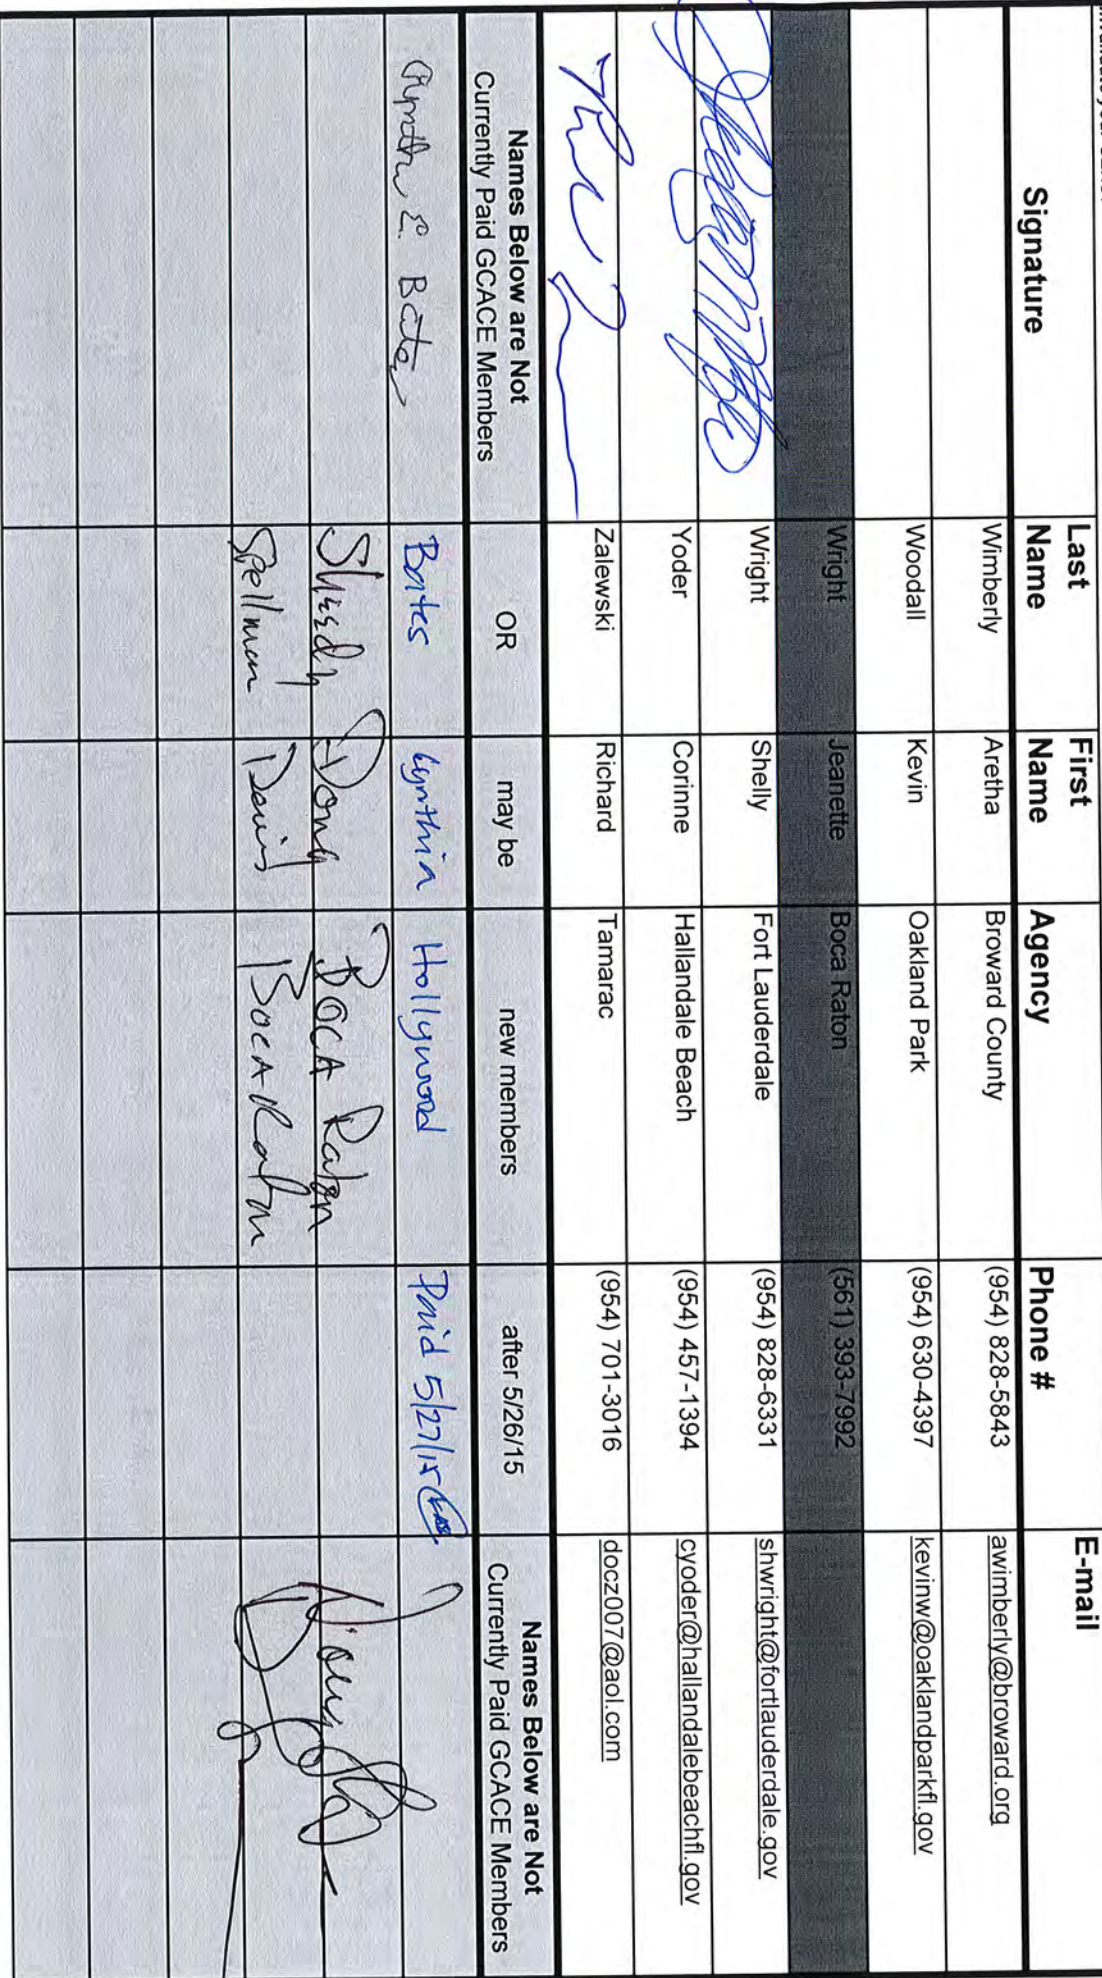 Signature Last Name First Name Agency Phone # E-mail
Wimberly Aretha Broward County (954) 828-5843 awimberly@broward.org
Woodall Kevin Oakland Park (954) 630-4397 kevinw@oaklandparkfl.gov
Wright Jeanette Boca Raton (561) 393-7992
Wright Shelly Fort Lauderdale (954) 828-6331 shwright@fortlauderdale.gov
Yoder Corinne Hallandale Beach (954) 457-1394 cyoder@hallandalebeachfl.gov
Zalewski Richard Tamarac (954) 701-3016 docz007@aol.com
Names Below are Not Currently Paid GCACE Members OR may be new members after 5/26/15 Names Below are Not Currently Paid GCACE Members
Cynthia E. Bates Bates Cynthia Hollywood Paid 5/27/15
Doug BOCA Raton
Spellman David BOCA Raton